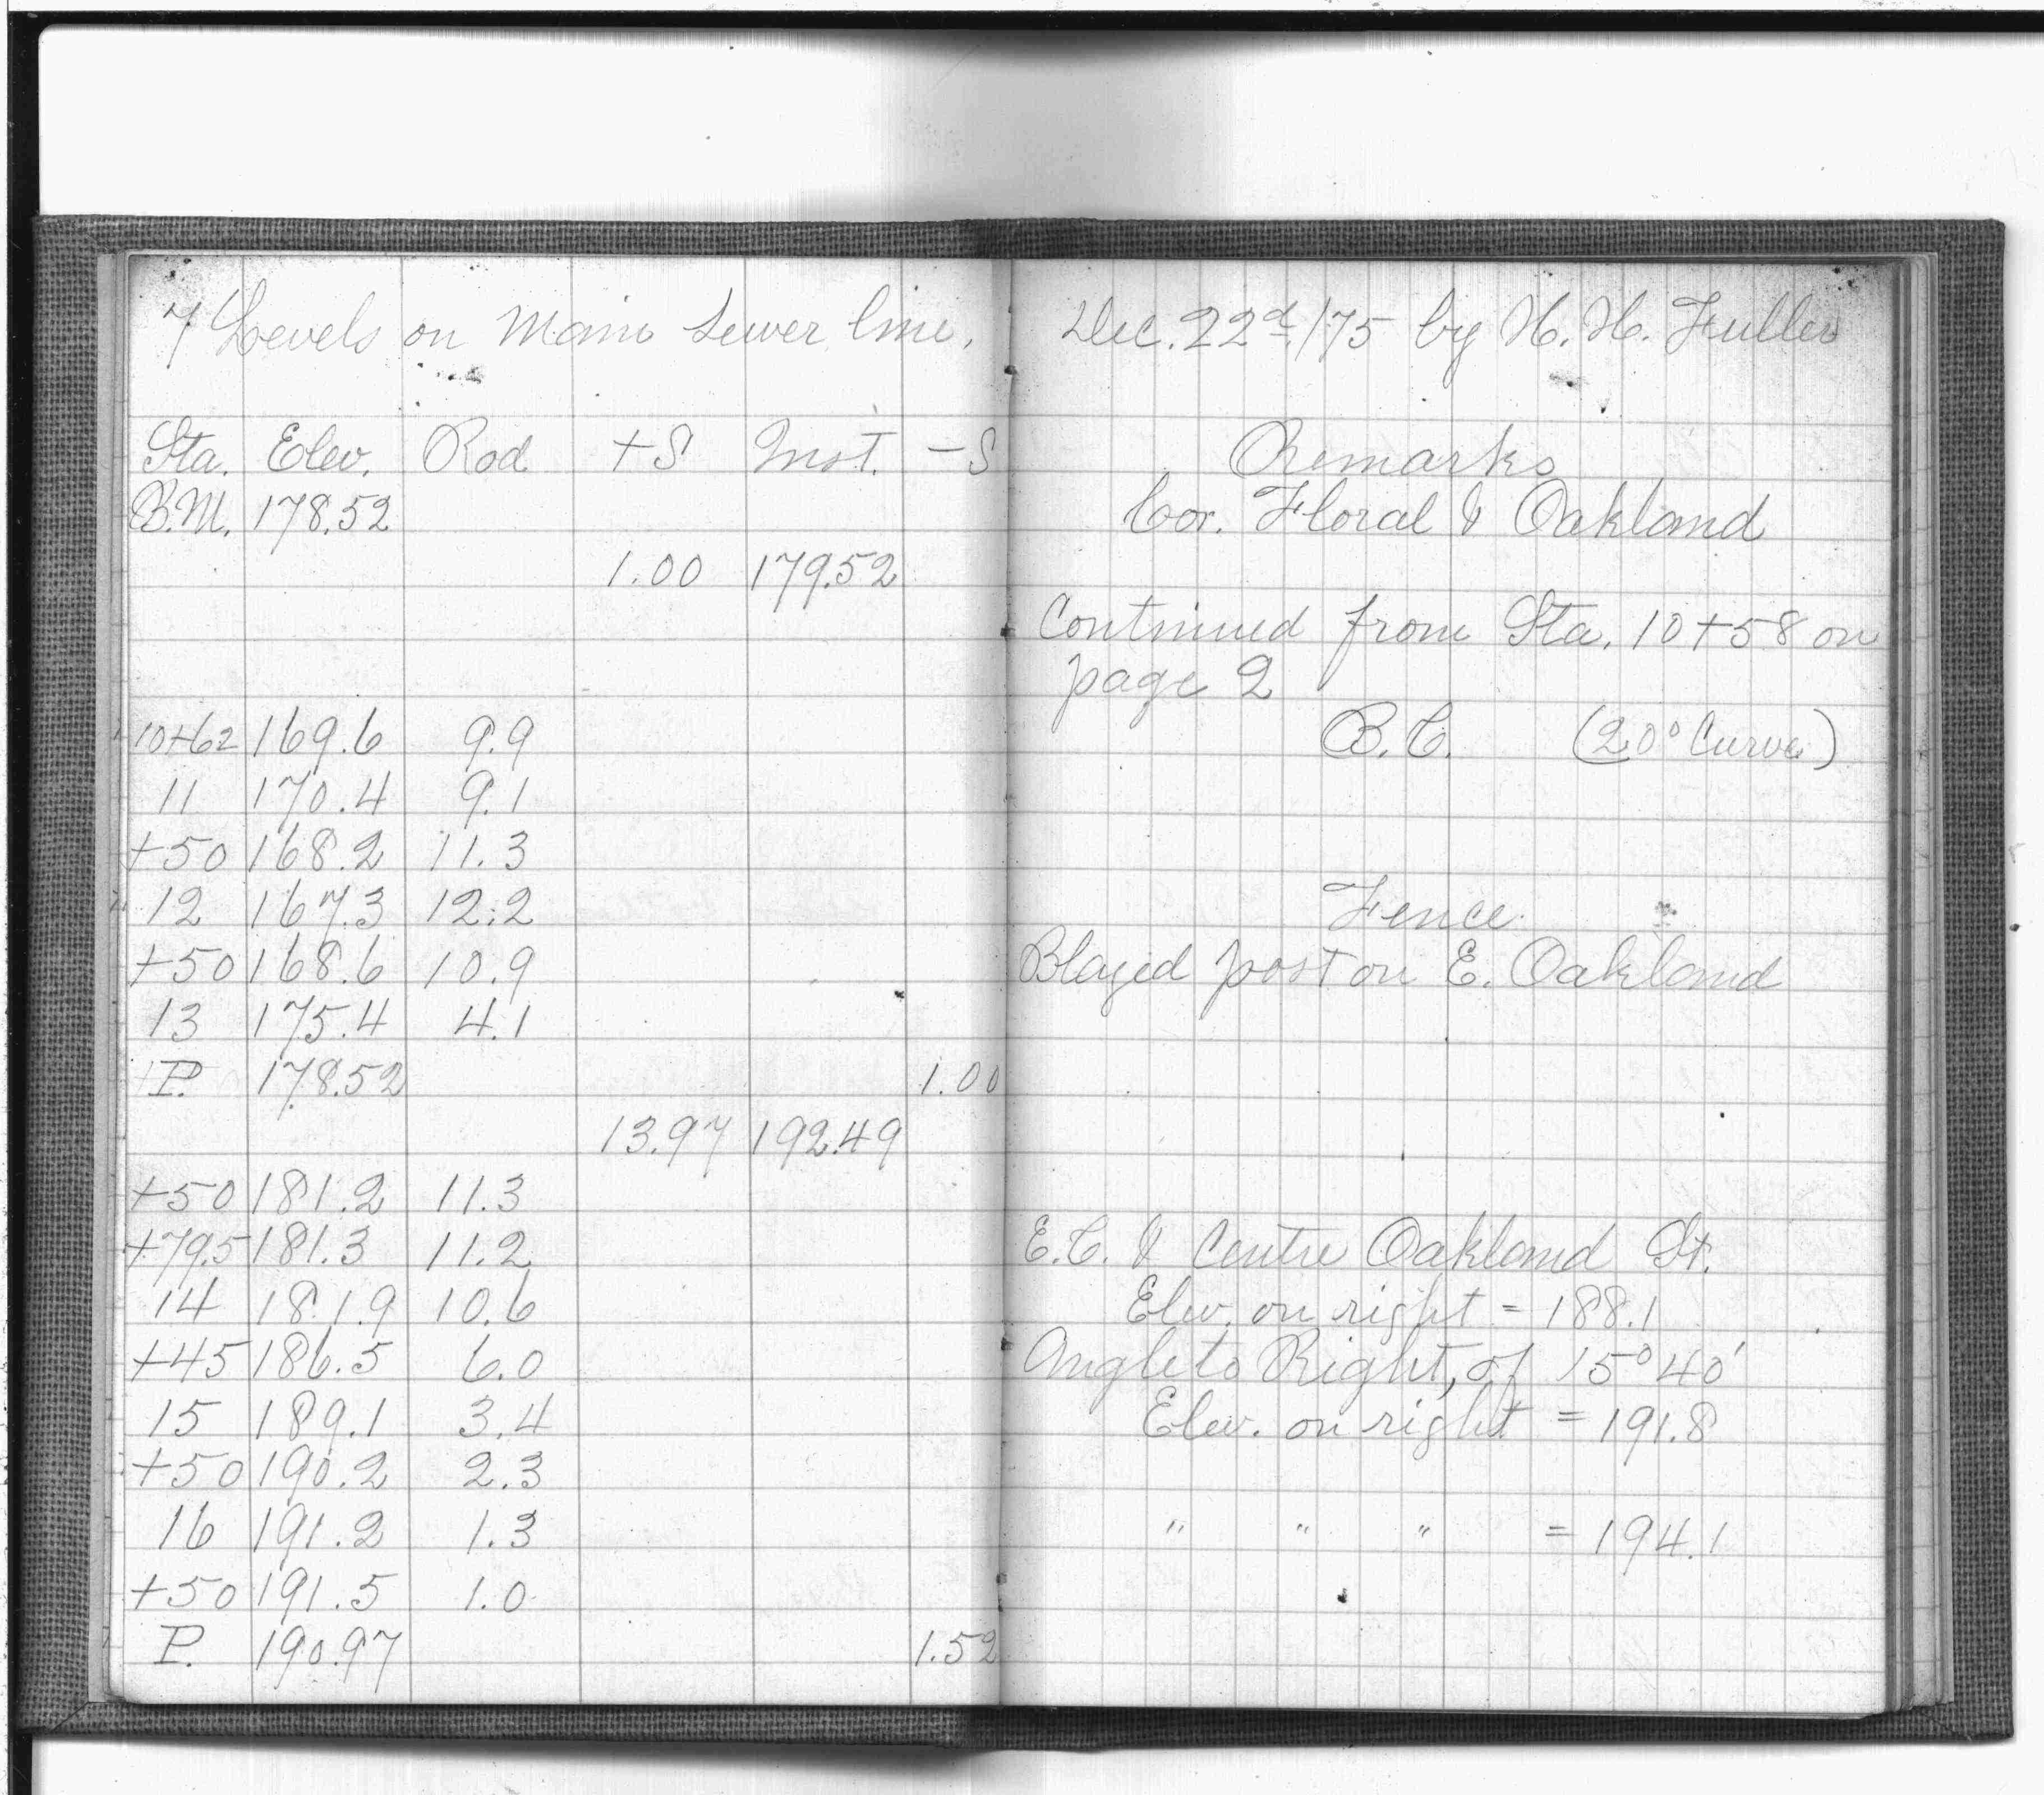 7 Levels on Main Sewer line.
Sta. Elev. Rod +S Inst. -S
B.M. 178.52
1.00 179.52
10+62 169.6 9.9
11 170.4 9.1
+50 168.2 11.3
12 167.3 12.2
+50 168.6 10.9
13 175.4 4.1
P. 178.52 1.00
13.97 192.49
+50 181.2 11.3
+79.5 181.3 11.2
14 181.9 10.6
+45 186.5 6.0
15 189.1 3.4
+50 190.2 2.3
16 191.2 1.3
+50 191.5 1.0
P. 190.97 1.52
Dec. 22d /75 by H. H. Fuller
Remarks
Cor. Floral & Oakland
Continued from Sta. 10+58 on
page 2
B.C. (20° Curve)
Fence
Blazed post on E. Oakland
E.C. & Centre Oakland St.
Elev. on right = 188.1
Angle to Right, of 15° 40'
Elev. on right = 191.8
" " " = 194.1